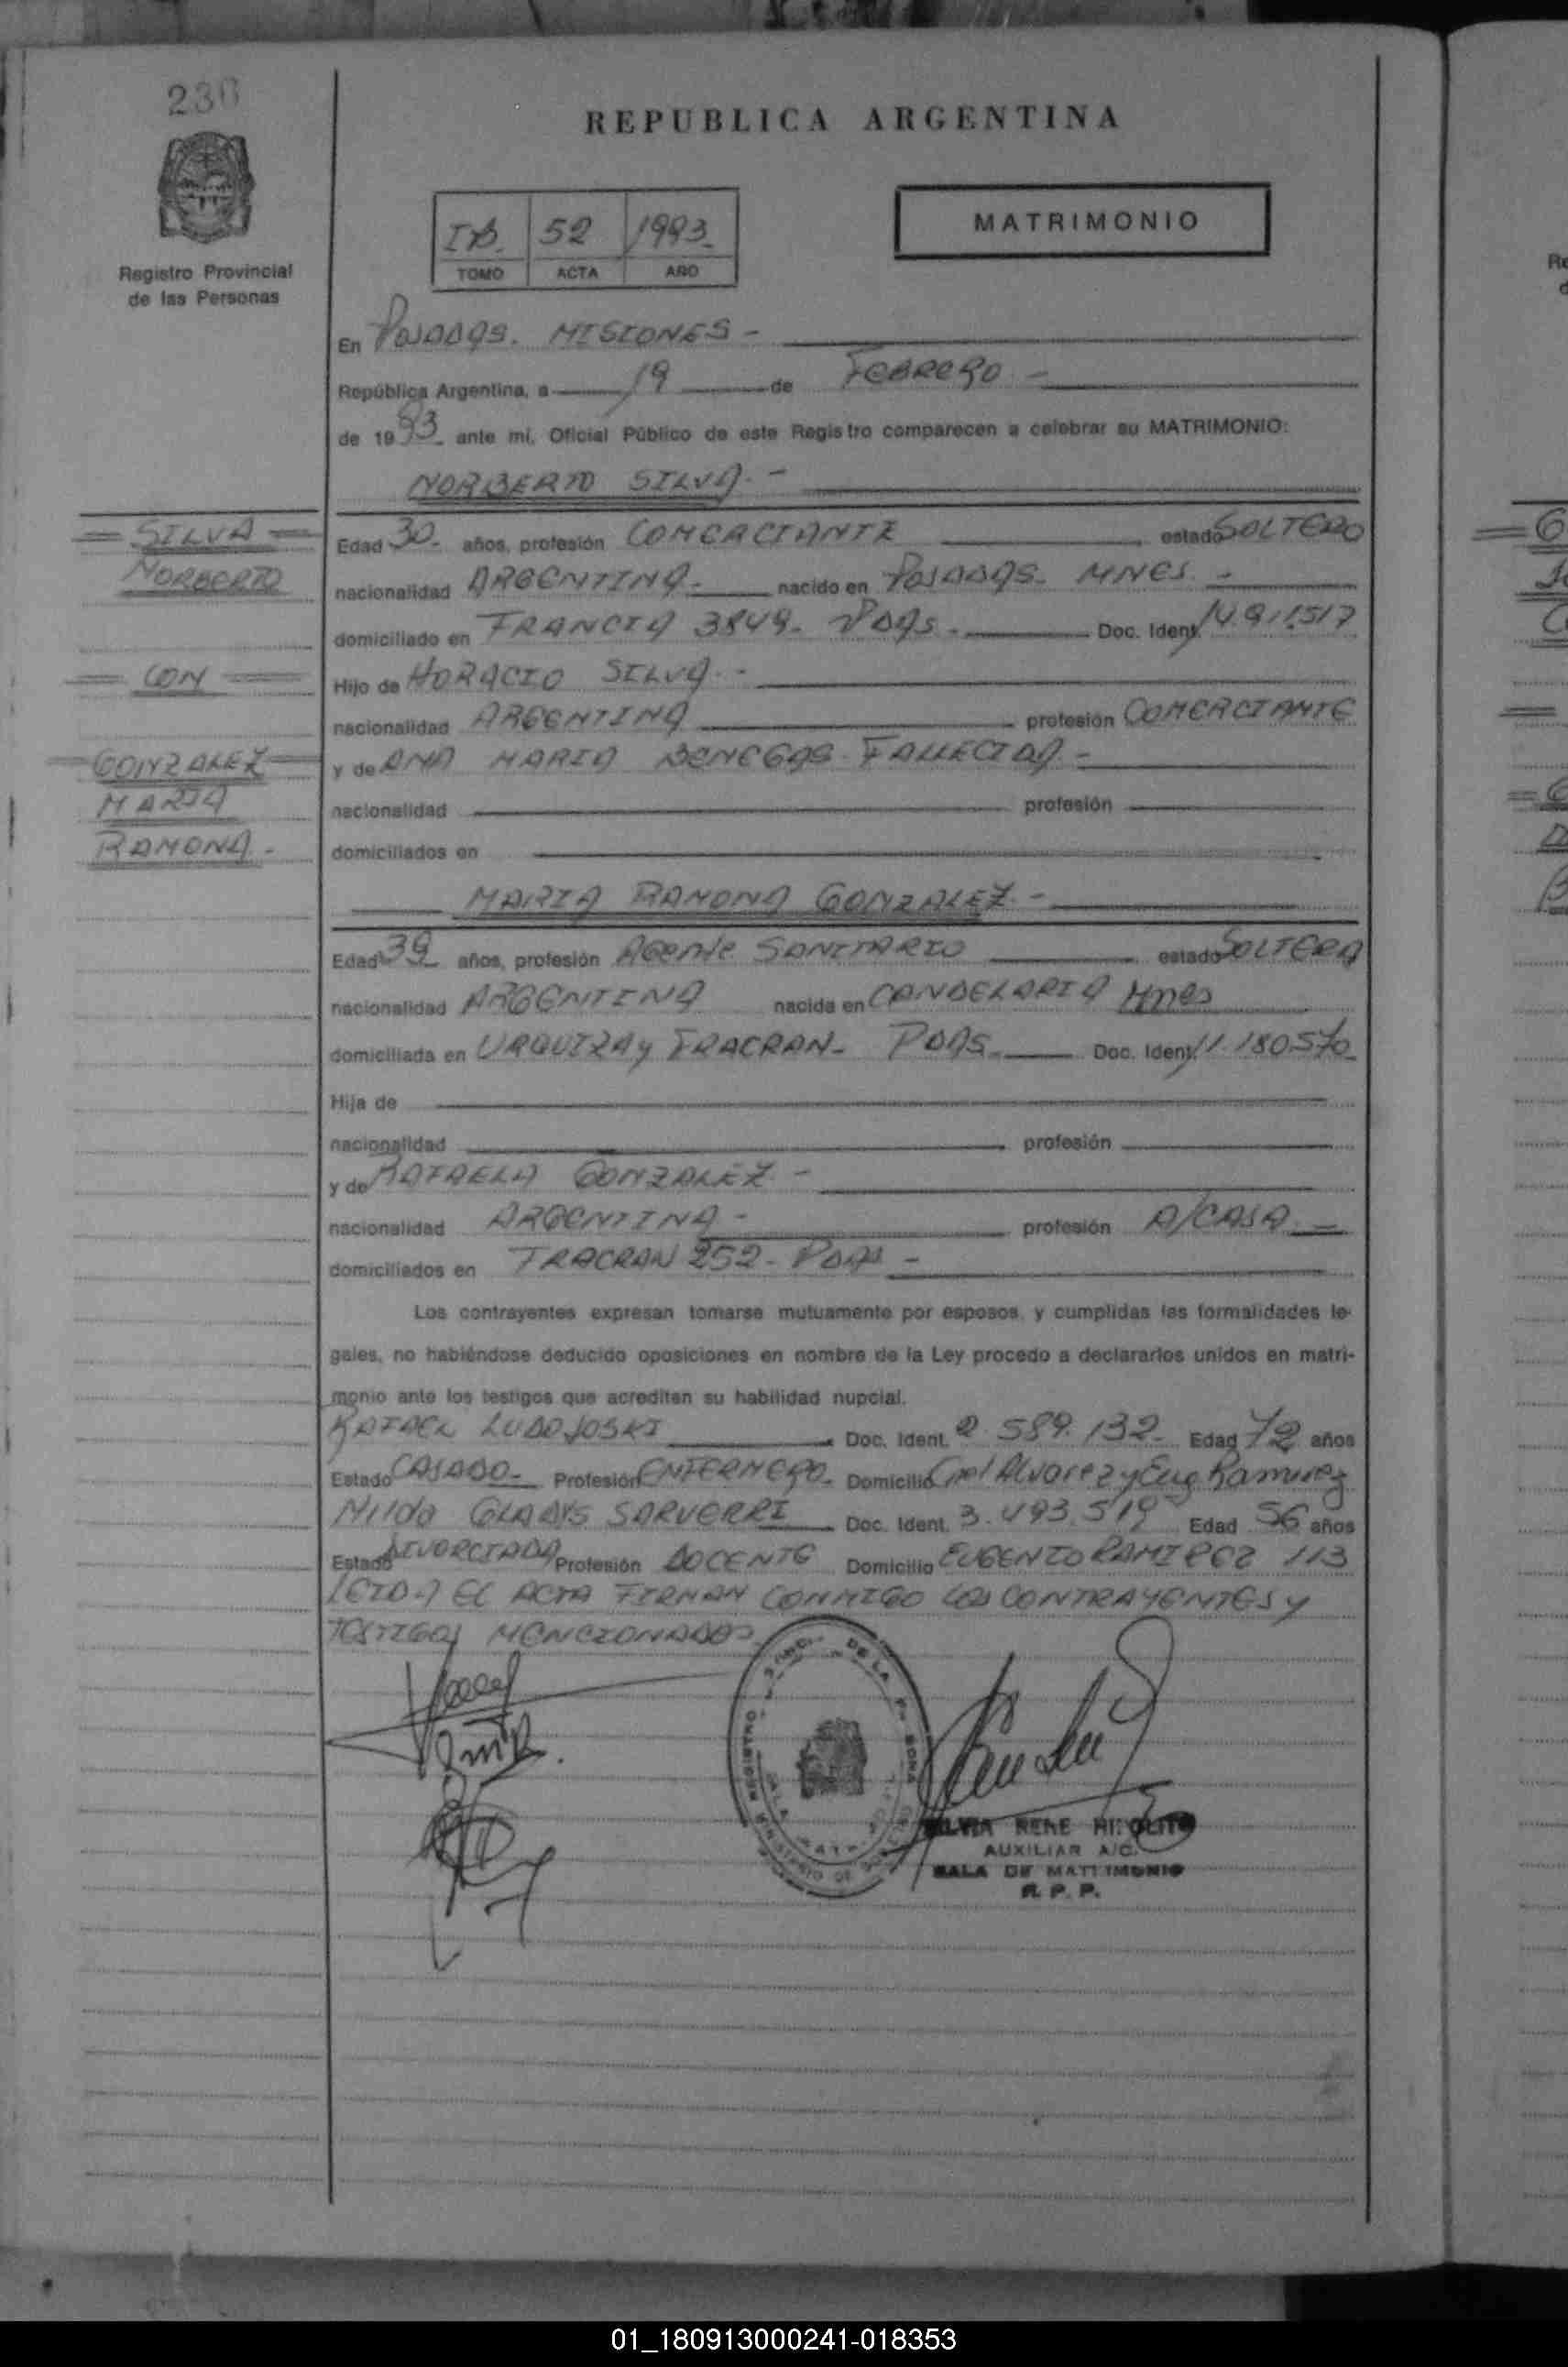 230
REPUBLICA ARGENTINA
IB. 52 1993
TOMO ACTA AÑO
MATRIMONIO
Registro Provincial
de las Personas
En Posadas. MISIONES -
República Argentina, a 19 de FEBRERO -
de 1993 ante mí, Oficial Público de este Registro comparecen a celebrar su MATRIMONIO:
NORBERTO SILVA. -
= SILVA =
NORBERTO
= CON =
GONZALEZ
MARIA
RAMONA -
Edad 30- años, profesión COMERCIANTE estado SOLTERO
nacionalidad ARGENTINA- nacido en Posadas- MNES. -
domiciliado en FRANCIA 3849- Pdas. - Doc. Ident. 14.911.517
Hijo de HORACIO SILVA. -
nacionalidad ARGENTINA profesión COMERCIANTE
y de ANA MARIA BENEGAS - FALLECIDA -
nacionalidad profesión
domiciliados en
MARIA RAMONA GONZALEZ. -
Edad 39 años, profesión Agente SANITARIO estado SOLTERA
nacionalidad ARGENTINA nacida en CANDELARIA Mnes
domiciliada en URQUIZA y TRACRAN- PDAS. Doc. Ident. 11.180.570
Hija de
nacionalidad profesión
y de RAFAELA GONZALEZ -
nacionalidad ARGENTINA - profesión A/CASA. -
domiciliados en TRACRAN 252 - PDAS -
Los contrayentes expresan tomarse mutuamente por esposos, y cumplidas las formalidades le-
gales, no habiéndose deducido oposiciones en nombre de la Ley procedo a declararlos unidos en matri-
monio ante los testigos que acreditan su habilidad nupcial.
RAFAEL LUDOJOSKI Doc. Ident. 2.589.132- Edad 72 años
Estado CASADO- Profesión ENFERMERO- Domicilio Cnel Alvarez y Eug Ramirez
Nilda GLADYS SARVERRI Doc. Ident. 3.493.519 Edad 56 años
Estado DIVORCIADA Profesión DOCENTE Domicilio EUGENIO RAMIREZ 113
LEIDA EL ACTA FIRMAN CONMIGO LOS CONTRAYENTES y
TESTIGOS MENCIONADOS
SILVIA RENE HIPOLITO
AUXILIAR A/C.
SALA DE MATRIMONIO
R. P. P.
01_180913000241-018353